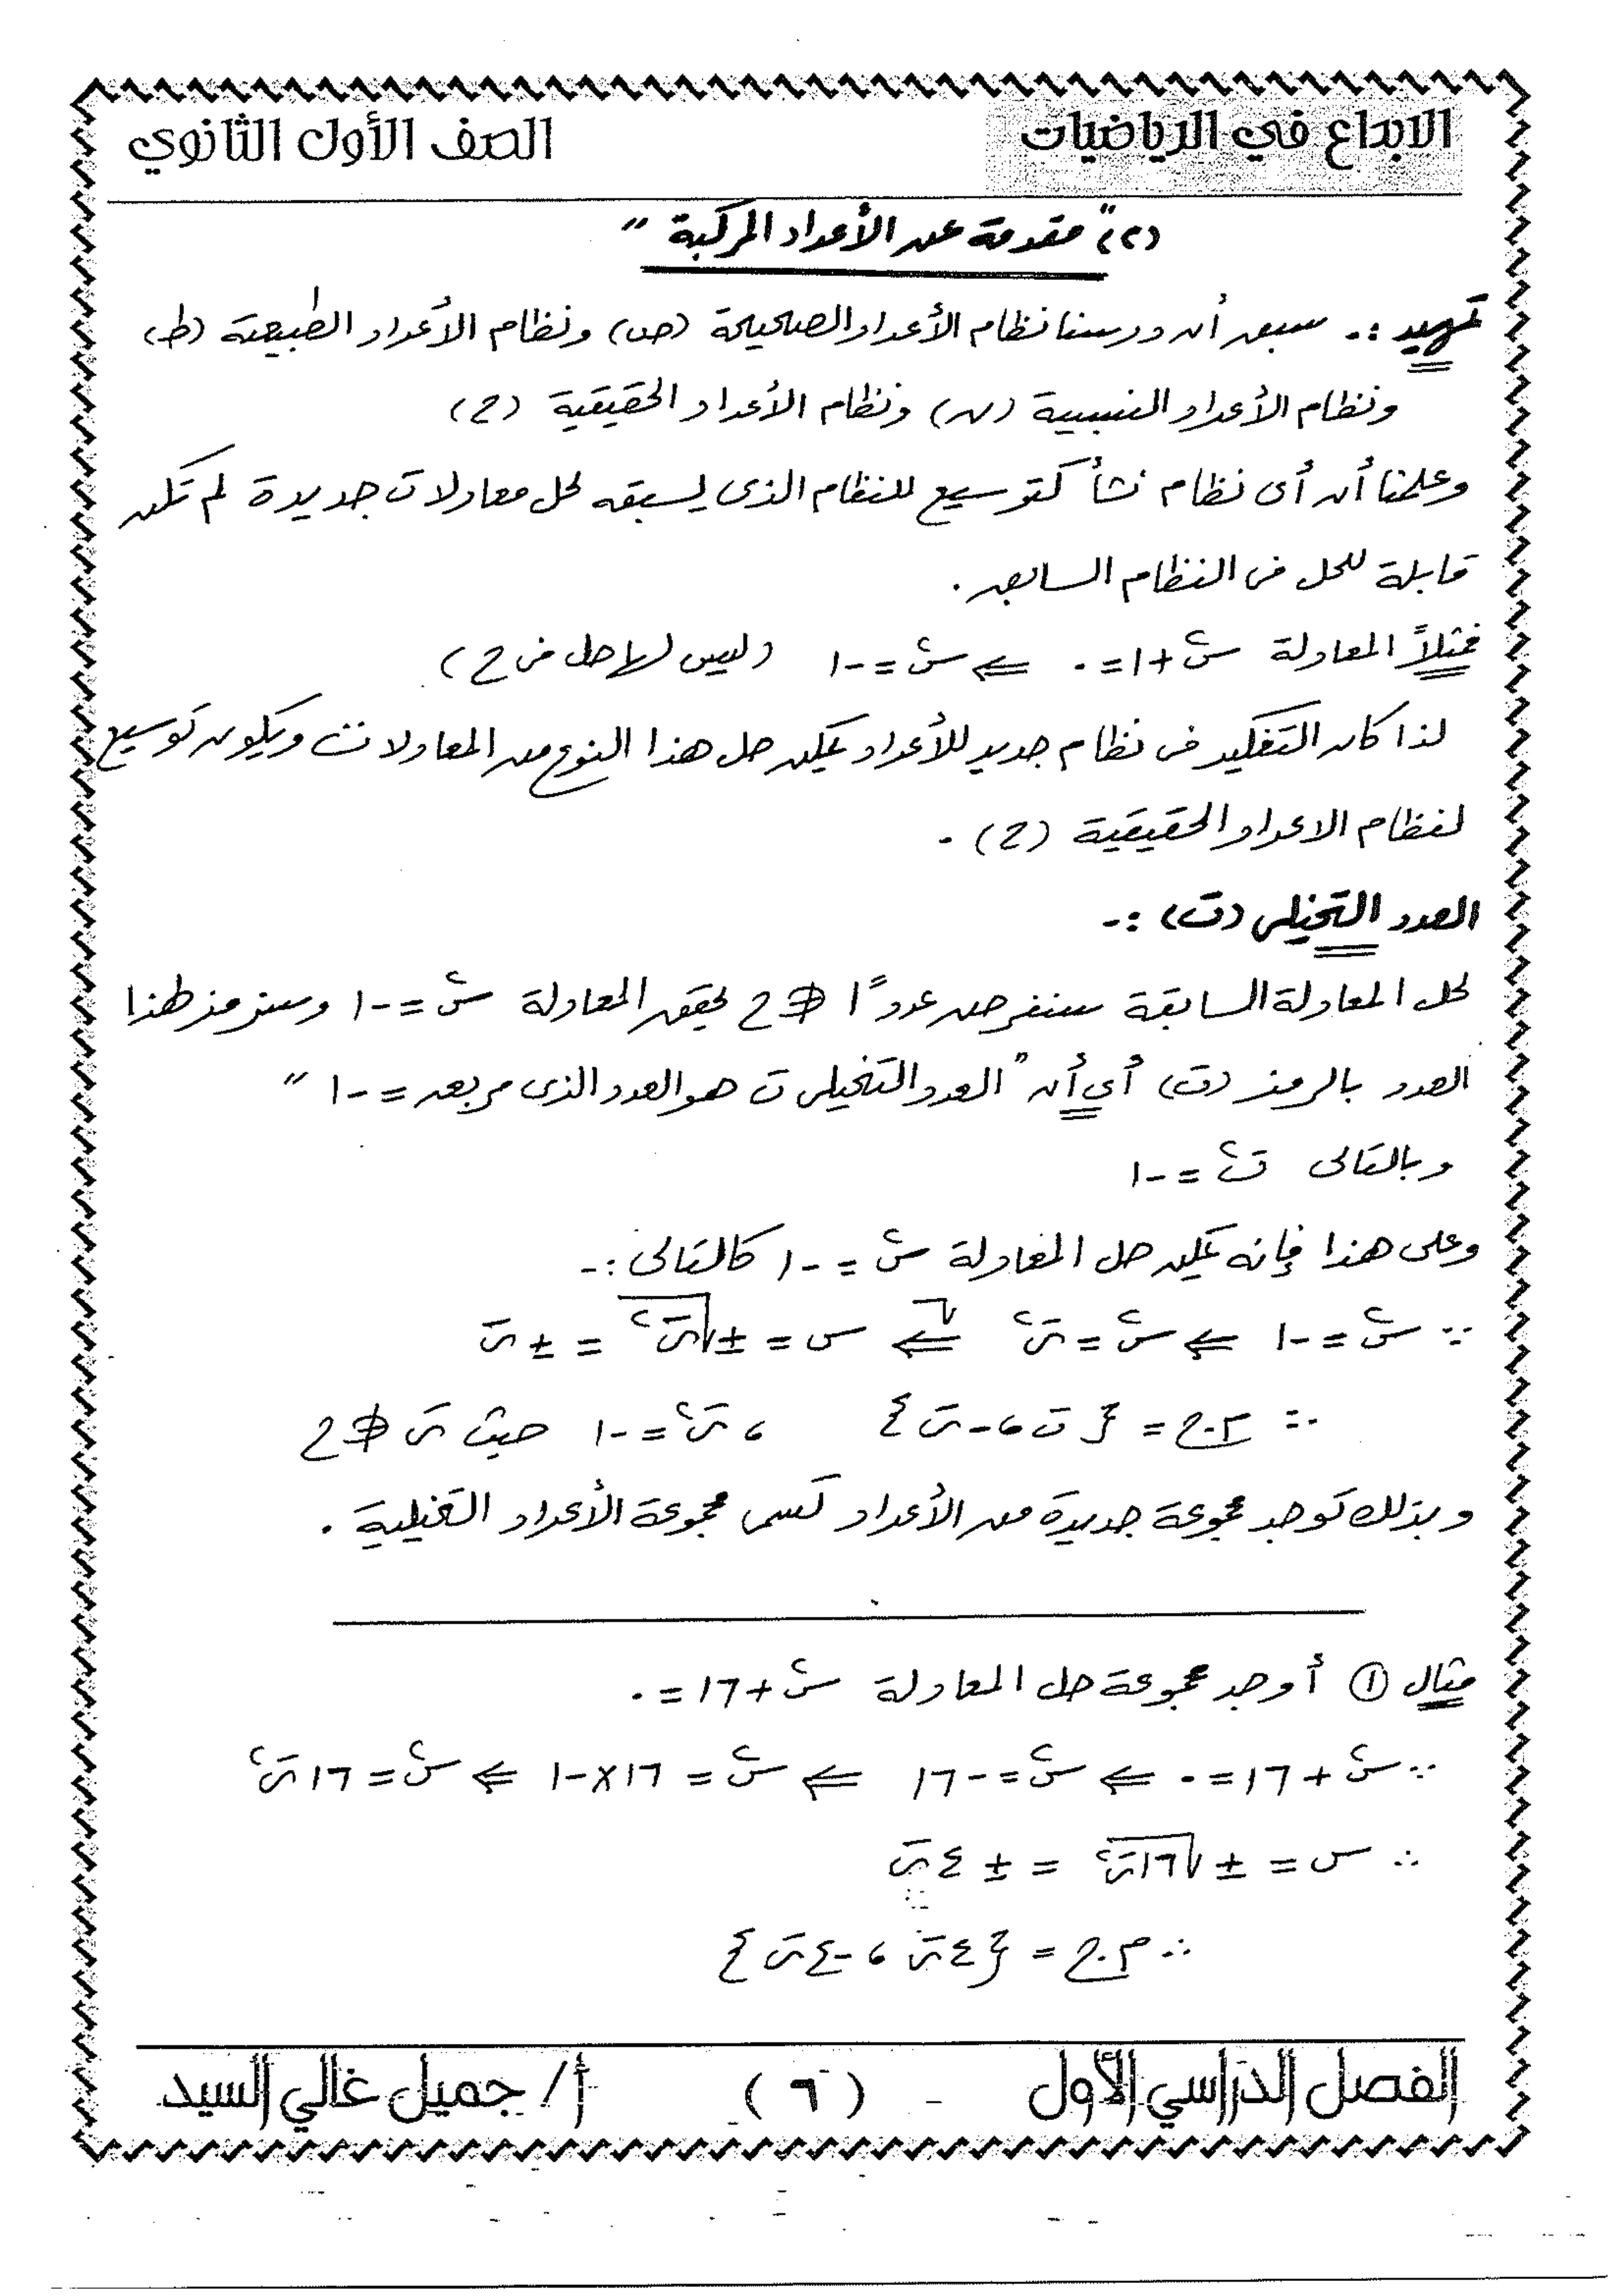 الابداع في الرياضيات الصف الأول الثانوي
(٢) " مقدمة عن الأعداد المركبة "
تمهيد :- سبق أن درسنا نظام الأعداد الصحيحة (ص) ونظام الأعداد الطبيعية (ط)
ونظام الأعداد النسبية (ن) ونظام الأعداد الحقيقية (ح)
وعلمنا أن أى نظام نشأ كتوسيع للنظام الذى يسبقه لحل معادلات جديدة لم تكن
قابلة للحل فى النظام السابق .
فمثلاً المعادلة س٢ + ١ = ٠ ⇐ س٢ = -١ (ليس لها حل فى ح)
لذا كان التفكير فى نظام جديد للأعداد يمكن حل هذا النوع من المعادلات ويكون توسيع
لنظام الاعداد الحقيقية (ح) .
العدد التخيلى (ت) :-
لحل المعادلة السابقة سنفرض عدداً ∉ ح يحقق المعادلة س٢ = -١ وسنرمز لهذا
العدد بالرمز (ت) أى أن " العدد التخيلى ت هو العدد الذى مربعه = -١ "
وبالتالى ت٢ = -١
وعلى هذا فإنه يمكن حل المعادلة س٢ = -١ كالتالى :-
∵ س٢ = -١ ⇐ س٢ = ت٢ ⇐√ س = ± √ت٢ = ± ت
∴ م.ح = { ت ، -ت } ، ت٢ = -١ حيث ت ∉ ح
وبذلك توجد مجموعة جديدة من الأعداد تسمى مجموعة الأعداد التخيلية .
مثال ① أوجد مجموعة حل المعادلة س٢ + ١٦ = ٠
∵ س٢ + ١٦ = ٠ ⇐ س٢ = -١٦ ⇐ س٢ = ١٦ × -١ ⇐ س٢ = ١٦ت٢
∴ س = ± √١٦ت٢ = ± ٤ت
∴ م.ح = { ٤ت ، -٤ت }
الفصل الدراسي الأول - (٦) أ/ جميل غالي السيد